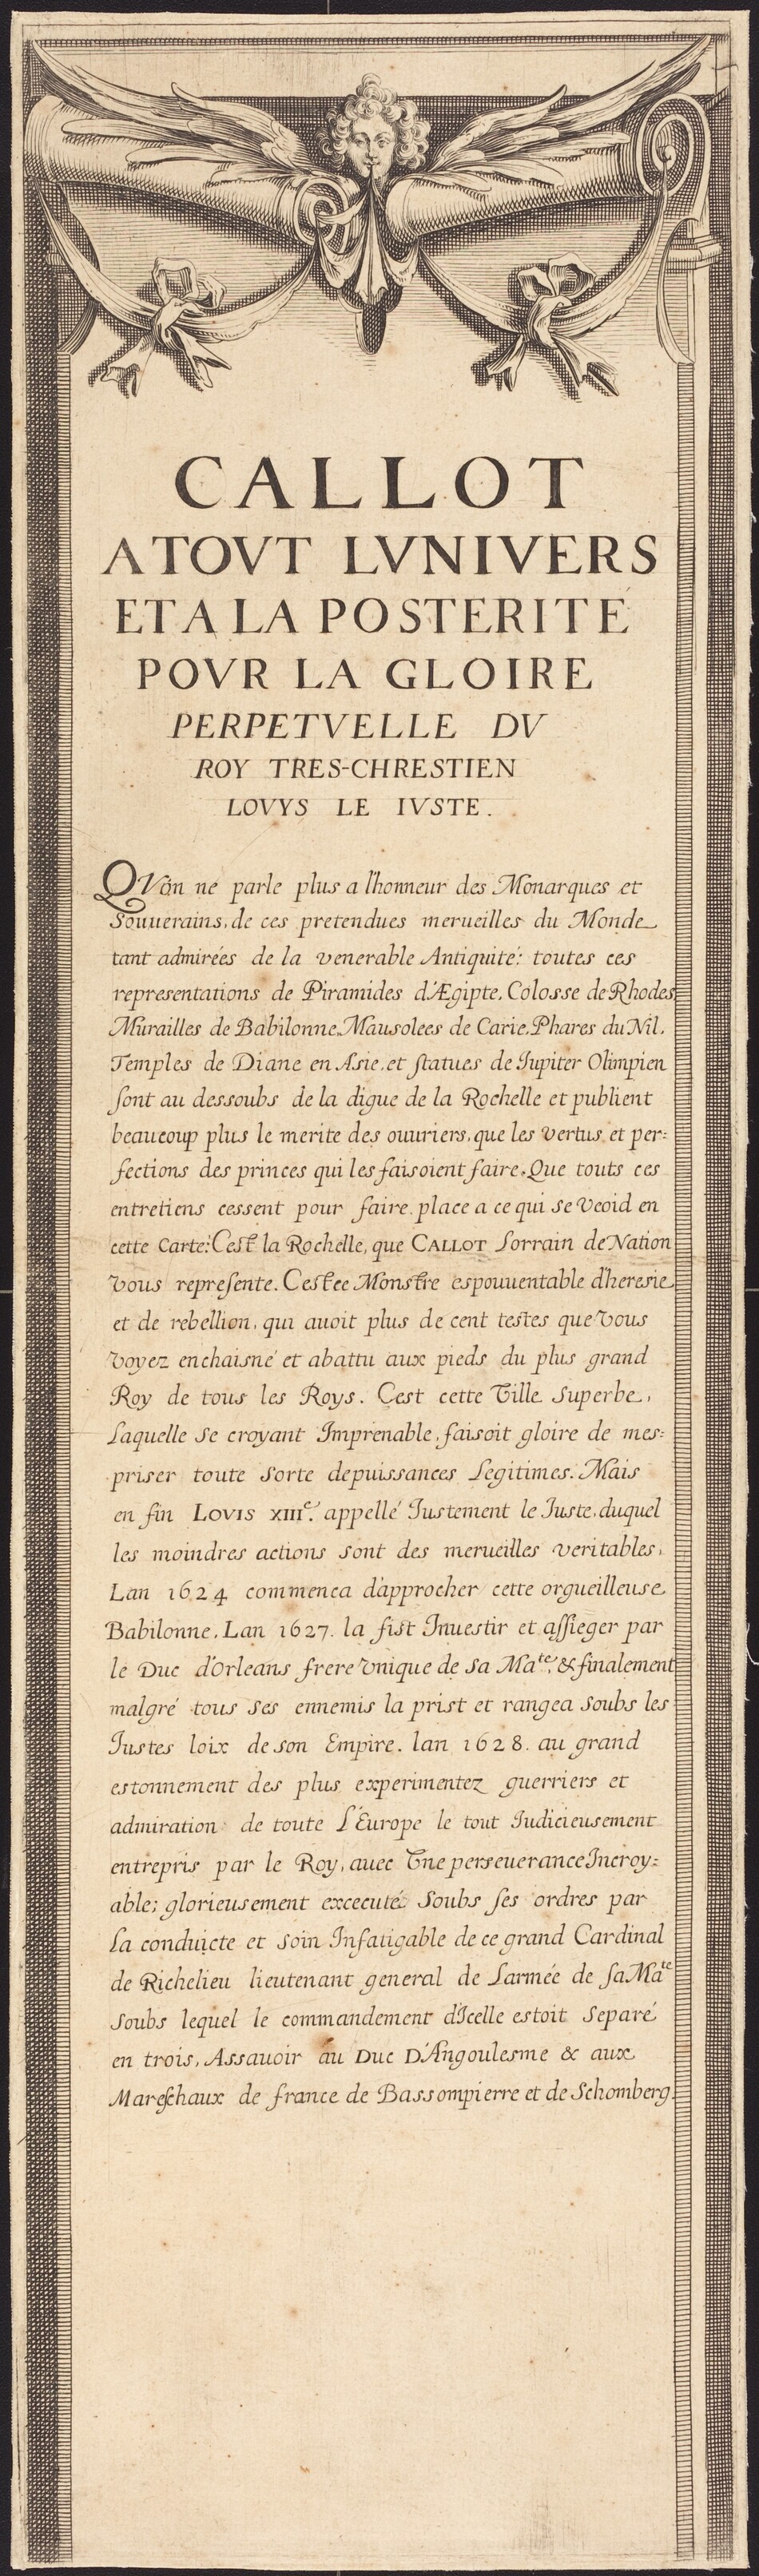 CALLOT
A TOVT LVNIVERS
ET A LA POSTERITÉ
POVR LA GLOIRE
PERPETVELLE DV
ROY TRES-CHRESTIEN
LOVYS LE IVSTE.
QVon ne parle plus a l'honneur des Monarques et
Souuerains, de ces pretendues merueilles du Monde
tant admirées de la venerable Antiquité: toutes ces
representations de Piramides d'Ægipte, Colosse de Rhodes,
Murailles de Babilonne, Mausolees de Carie, Phares du Nil,
Temples de Diane en Asie, et ſtatues de Iupiter Olimpien
ſont au dessoubs de la digue de la Rochelle et publient
beaucoup plus le merite des ouuriers, que les vertus et per=
fections des princes qui les faisoient faire. Que touts ces
entretiens cessent pour faire place a ce qui se veoid en
cette Carte: C'est la Rochelle, que CALLOT Lorrain de Nation
vous repreſente. C'est ce Monstre espouuentable d'heresie
et de rebellion, qui auoit plus de cent testes que vous
voyez enchaisné et abattu aux pieds du plus grand
Roy de tous les Roys. C'est cette Ville Superbe,
Laquelle se croyant Imprenable, faisoit gloire de mes=
priser toute sorte de puissances Legitimes. Mais
en fin LOVIS XIIIe. appellé Iustement le Iuste, duquel
les moindres actions sont des merueilles veritables,
Lan 1624 commenca d'approcher cette orgueilleuse
Babilonne, Lan 1627. la fist Inuestir et aſſieger par
le Duc d'Orleans frere vnique de sa Mate. & finalement
malgré tous ses ennemis la prist et rangea soubs les
Iustes loix de son Empire. lan 1628. au grand
estonnement des plus experimentez guerriers et
admiration de toute L'Europe le tout Iudicieusement
entrepris par le Roy, auec Vne perseuerance Incroy=
able; glorieusement excecuté Soubs ſes ordres par
La conduicte et soin Infatigable de ce grand Cardinal
de Richelieu lieutenant general de Larmée de ſa Mate
soubs lequel le commandement d'Icelle estoit Separé
en trois, Assauoir au Duc D'Angoulesme & aux
Mareſchaux de france de Bassompierre et de Schomberg.